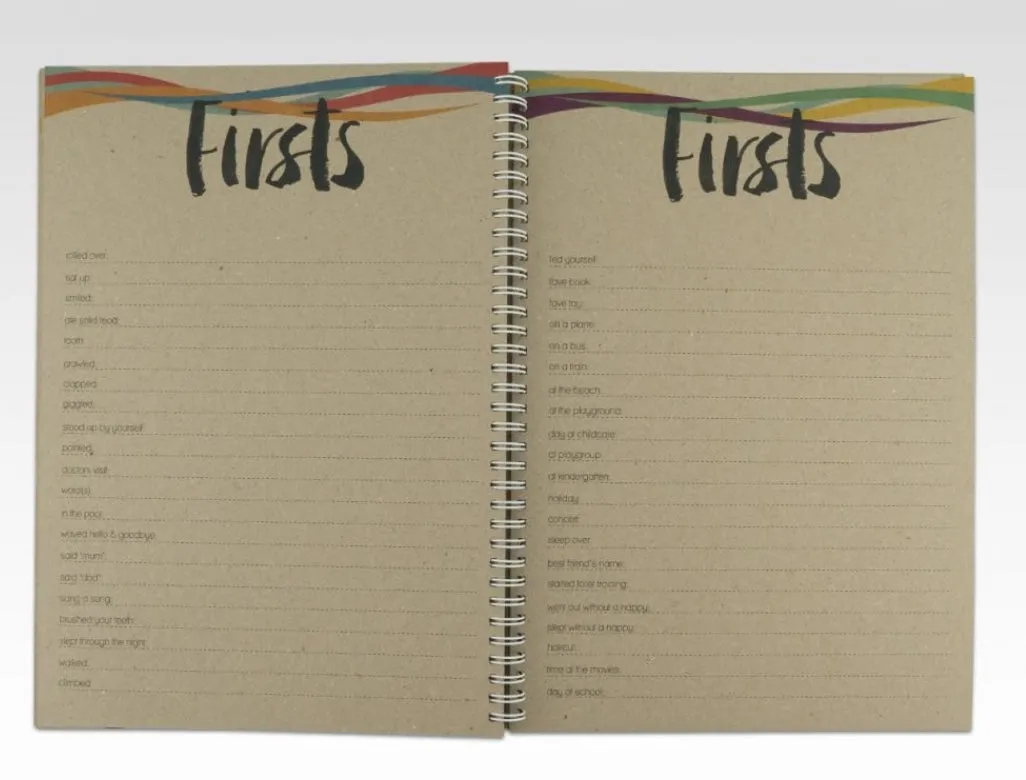 Firsts
rolled over:
sat up:
smiled:
ate solid food:
tooth:
crawled:
clapped:
giggled:
stood up by yourself:
pointed:
doctors visit:
word(s):
in the pool:
waved hello & goodbye:
said "mum":
said "dad":
sang a song:
brushed your teeth:
slept through the night:
walked:
climbed:
Firsts
fed yourself:
fave book:
fave toy:
on a plane:
on a bus:
on a train:
at the beach:
at the playground:
day at childcare:
at playgroup:
at kindergarten:
holiday:
concert:
sleep over:
best friend's name:
started toilet training:
went out without a nappy:
slept without a nappy:
haircut:
time at the movies:
day of school: